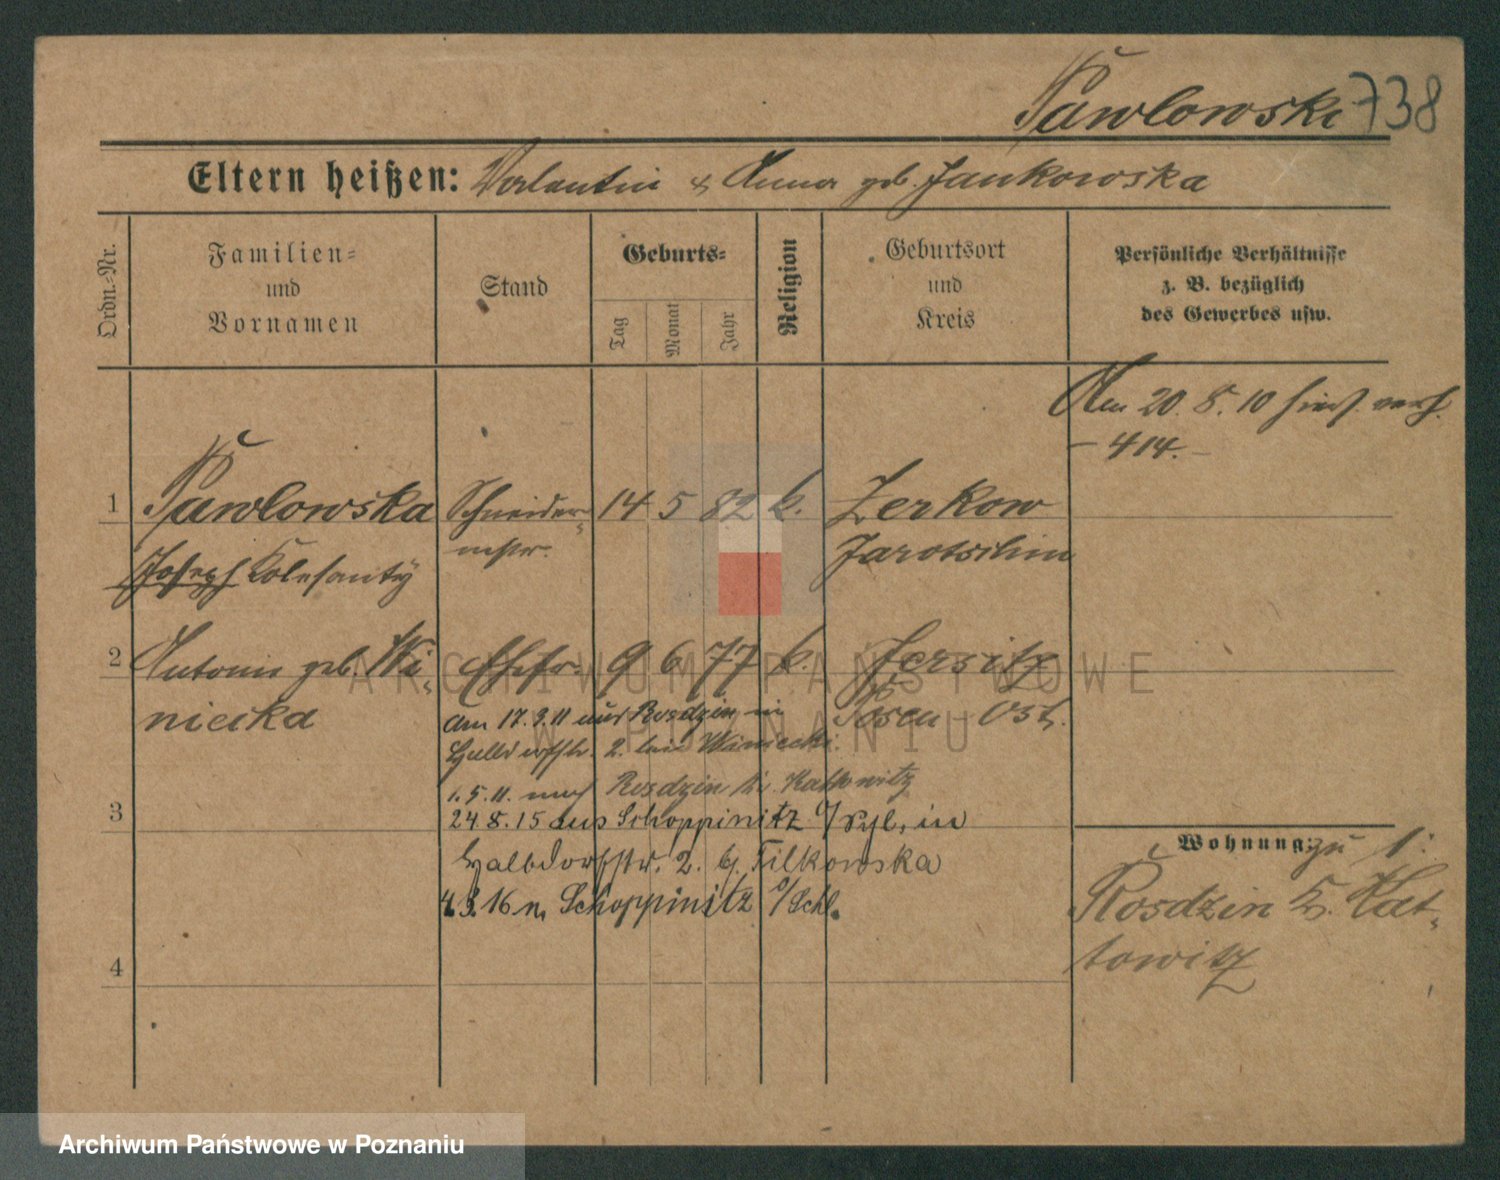 Pawlowski 738
Eltern heißen: Valentin & Anna geb. Jankowska
Ordn.-Nr.
Familien-
und
Vornamen
Stand
Geburts-
Tag
Monat
Jahr
Religion
Geburtsort
und
Kreis
Persönliche Verhältnisse
z. B. bezüglich
des Gewerbes usw.
Am 20. 8. 10 hies. verh.
- 414. -
1 Pawlowska Schneider- 14 5 82 k. Zerkow
mstr. Jarotschin
Joseph Kolasanty
2 Antonie geb. Wi- Ehefr. 9 6 77 k. Jersitz
niecka Posen Ost.
Am 17. 3. 11 aus Rosdzin in
Halbdorfstr. 2. bei Winiecki.
1. 5. 11. nach Rosdzin Kr. Kattowitz
3
24 8. 15 aus Schoppinitz in
Halbdorfstr. 2. b/ Filkowska
4. 3. 16 n. Schoppinitz o/Schl.
4
Wohnung: zu 1:
Rosdzin K. Kat-
towitz
ARCHIWUM PAŃSTWOWE
W POZNANIU
Archiwum Państwowe w Poznaniu